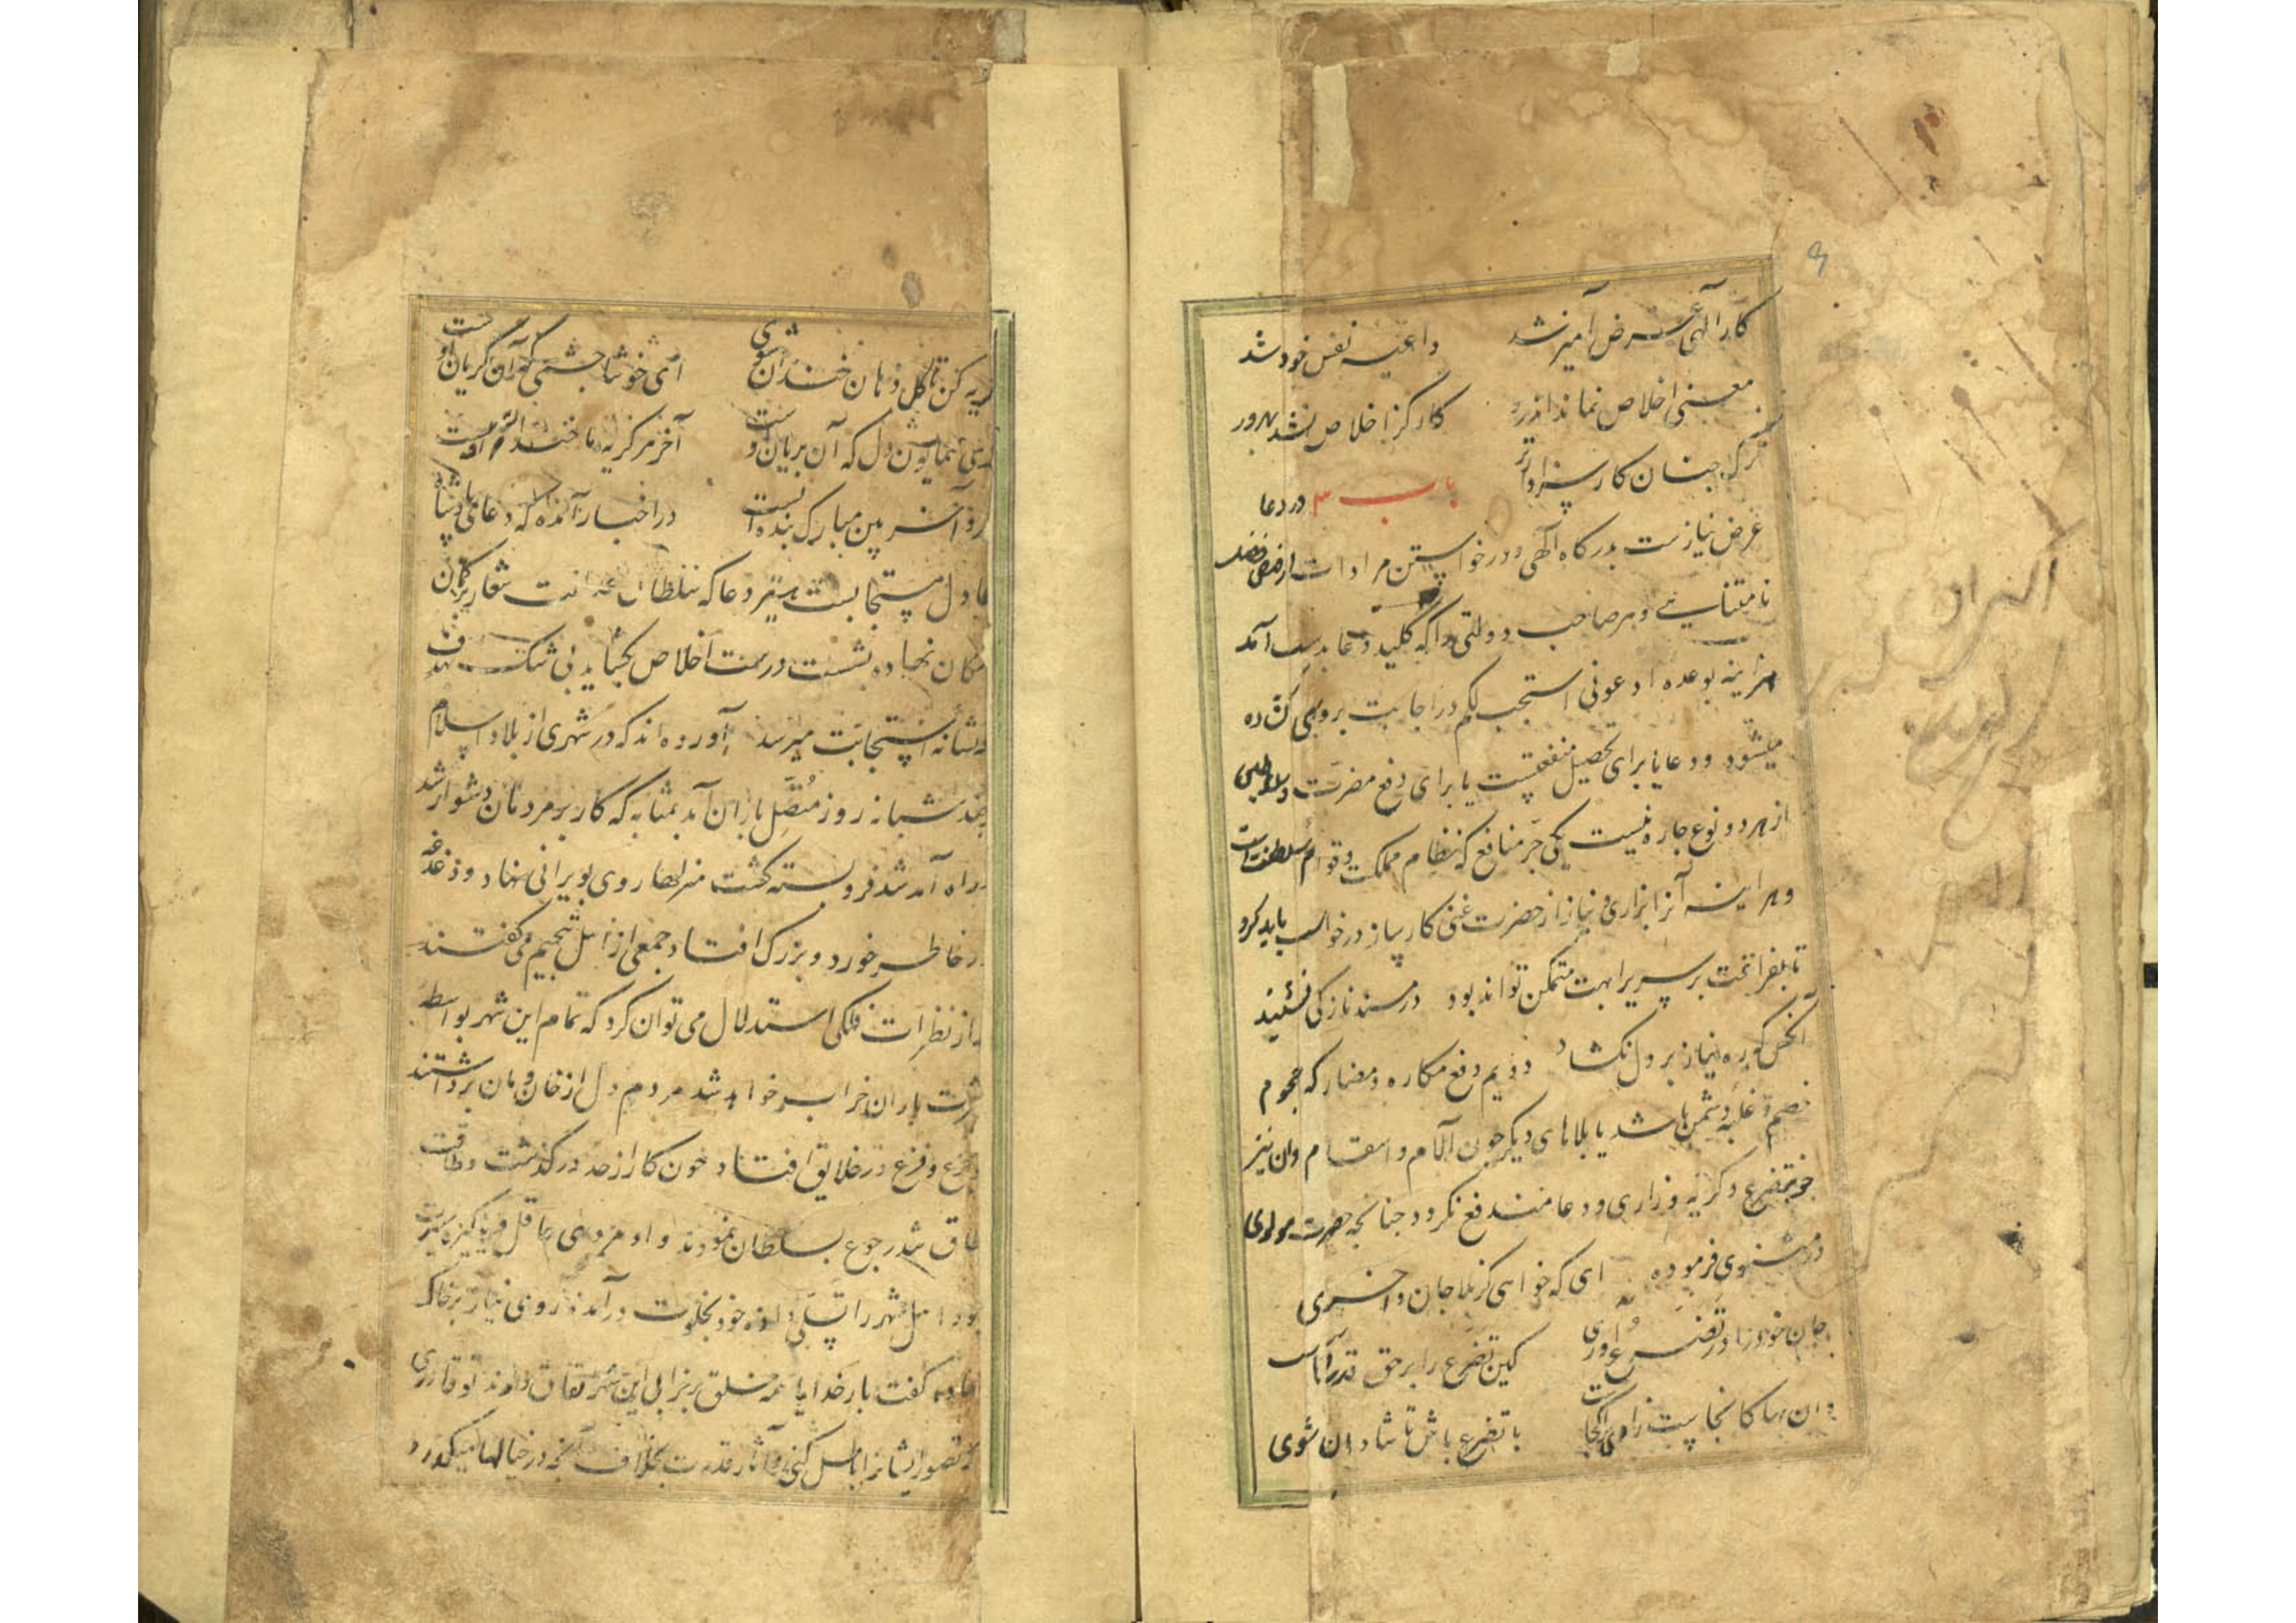 کار الهی غرض آمیز شد داعیه نفس خود شد
معنی اخلاص نماند اندرو کار کز اخلاص نشد بهره‌ور
هر که چنان کار سزاوارتر باب ۳ در دعا
عرض نیازست بدرگاه الهی و درخواستن مرادات از فیض فضل
نامتناهی و هر صاحب دولتی را که کلید دعا بدست آمد
هر آینه بوعده ادعونی استجب لکم در اجابت بروی کشاده
میشود و دعا یا برای تحصیل منفعتیست یا برای دفع مضرت
از هر دو نوع چاره نیست یکی جر منافع که نظام مملکت و قوام سلطنت است
و هر اینه آنرا بزاری و نیاز از حضرت غنی کارساز درخواست باید کرد
تا بفراغت بر سریر ابهت متمکن تواند بود در مسند ناز کی نشیند
آنکس که ره نیاز بر دل نکشاد دویم دفع مکاره و مضار که هجوم
خصم و غلبه دشمن باشد یا بلاهای دیگر چون آلام و اسقام و ان نیز
جز بتضرع و گریه و زاری و دعا مندفع نگردد چنانچه حضرت مولوی
در مثنوی فرموده ای که خواهی کز بلا جان واخری
جان خود را در تضرع اوری کین تضرع را بر حق قدرهاست
وان بها کانجاست زاری را کجاست با تضرع باش تا شادان شوی
گریه کن تا گل دهان خندان شوی ای خوشا چشمی که آن گریان اوست
ای همایون دل که آن بریان اوست آخر هر گریه ما خنده ایست
مرد آخر بین مبارک بنده ایست در اخبار آمده که دعای پادشاه
عادل مستجابست هر تیر دعا که سلطان عدالت شعار در کمان
نهاده بشست درست اخلاص بکشاید بی شک بهدف
و نشانه استجابت میرسد آورده‌اند که در شهری از بلاد اسلام
چند شبانه روز متصل باران آمد بمثابه که کار بر مردمان دشوار شد
و راه آمد شد فرو بسته گشت منزلها روی بویرانی نهاد و دغدغه
در خاطر خورد و بزرگ افتاد جمعی از اهل تنجیم می گفتند
که از نظرات فلکی استدلال می توان کرد که تمام این شهر بواسطه
کثرت باران خراب خواهد شد مردم دل از خان و مان برداشتند
جزع و فزع در خلایق افتاد چون کار از حد در گذشت و طاقت
طاق شد رجوع بسلطان نمودند و او مردی عاقل و پاکیزه سیرت
بود اهل شهر را تسلی داده خود بخلوت در آمد و روی نیاز بر خاک
نهاده گفت بار خدایا همه خلق بر خرابی این شهر اتفاق دارند تو قادری
که تصور ایشانرا باطل کنی و آثار قدرت بخلاف آنچه در خیالها میگذرد